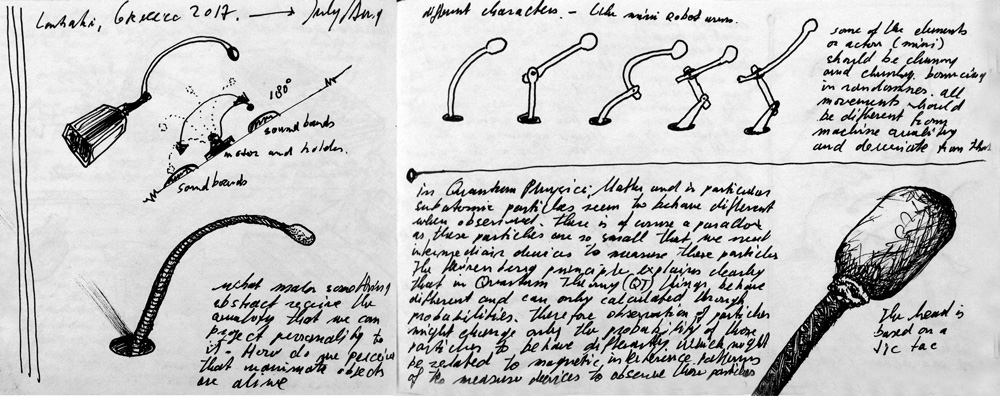 Loutraki, Greece 2017. → July/Aug
180°
sound bands
motor and holder.
sound boards
what makes something
abstract receive the
quality that we can
project personality to
it - How do we perceive
that inanimate objects
are alive
different characters. - like mini robot arms.
some of the elements
or actors (mini)
should be clumsy
and chunky, bouncing
in randomnes. all
movements should
be different from
machine quality
and deviate from that
in Quantum Physics Matter and in particular
subatomic particles seem to behave different
when observed. There is of course a paradox
as these particles are so small that we need
intermediair devices to measure these particles
The Heisenberg principle explaines clearly
that in Quantum Theory (QT) things behave
different and can only calculated through
probabilities. Therefore observation of particles
might change only the probability of those
particles to behave differently, which might
be related to magnetic interference patterns
of the measure devices to observe those particles
The head is
based on a
Tic tac